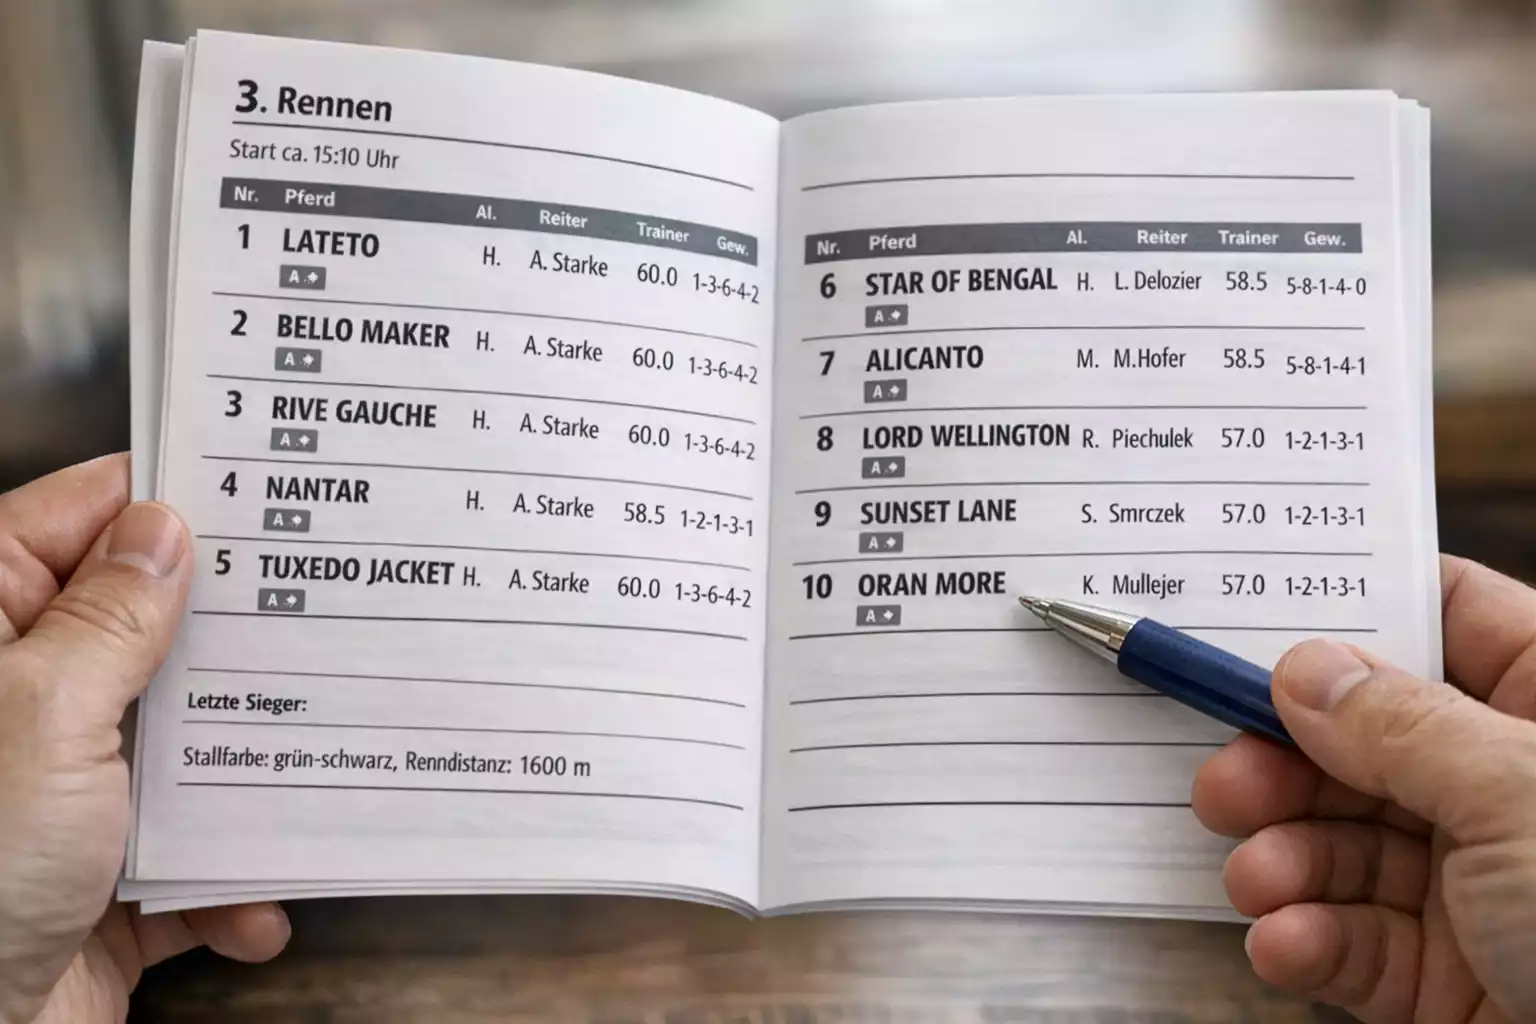 3. Rennen
Start ca. 15:10 Uhr
Nr. Pferd Al. Reiter Trainer Gew.
1 LATETO H. A. Starke 60.0 1-3-6-4-2
A
2 BELLO MAKER H. A. Starke 60.0 1-3-6-4-2
A
3 RIVE GAUCHE H. A. Starke 60.0 1-3-6-4-2
A
4 NANTAR H. A. Starke 58.5 1-2-1-3-1
A
5 TUXEDO JACKET H. A. Starke 60.0 1-3-6-4-2
A
Letzte Sieger:
Stallfarbe: grün-schwarz, Renndistanz: 1600 m
Nr. Pferd Al. Reiter Trainer Gew.
6 STAR OF BENGAL H. L. Delozier 58.5 5-8-1-4-0
A
7 ALICANTO M. M.Hofer 58.5 5-8-1-4-1
A
8 LORD WELLINGTON R. Piechulek 57.0 1-2-1-3-1
A
9 SUNSET LANE S. Smrczek 57.0 1-2-1-3-1
A
10 ORAN MORE K. Mullejer 57.0 1-2-1-3-1
A